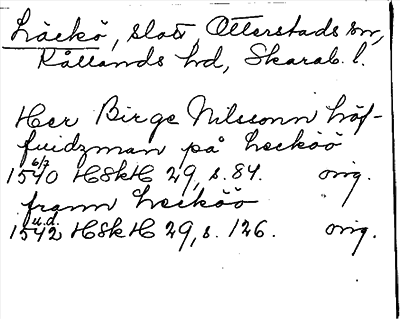 Läckö, slott Otterstads sn,
Kållands hd, Skarab. l.
Her Birge Nilssonn höf-
fuidzman på Leeköö
1540 6/7 HSkH 29, s. 84. orig.
framm Leeköö
1542 u.d. HSkH 29, s. 126. orig.